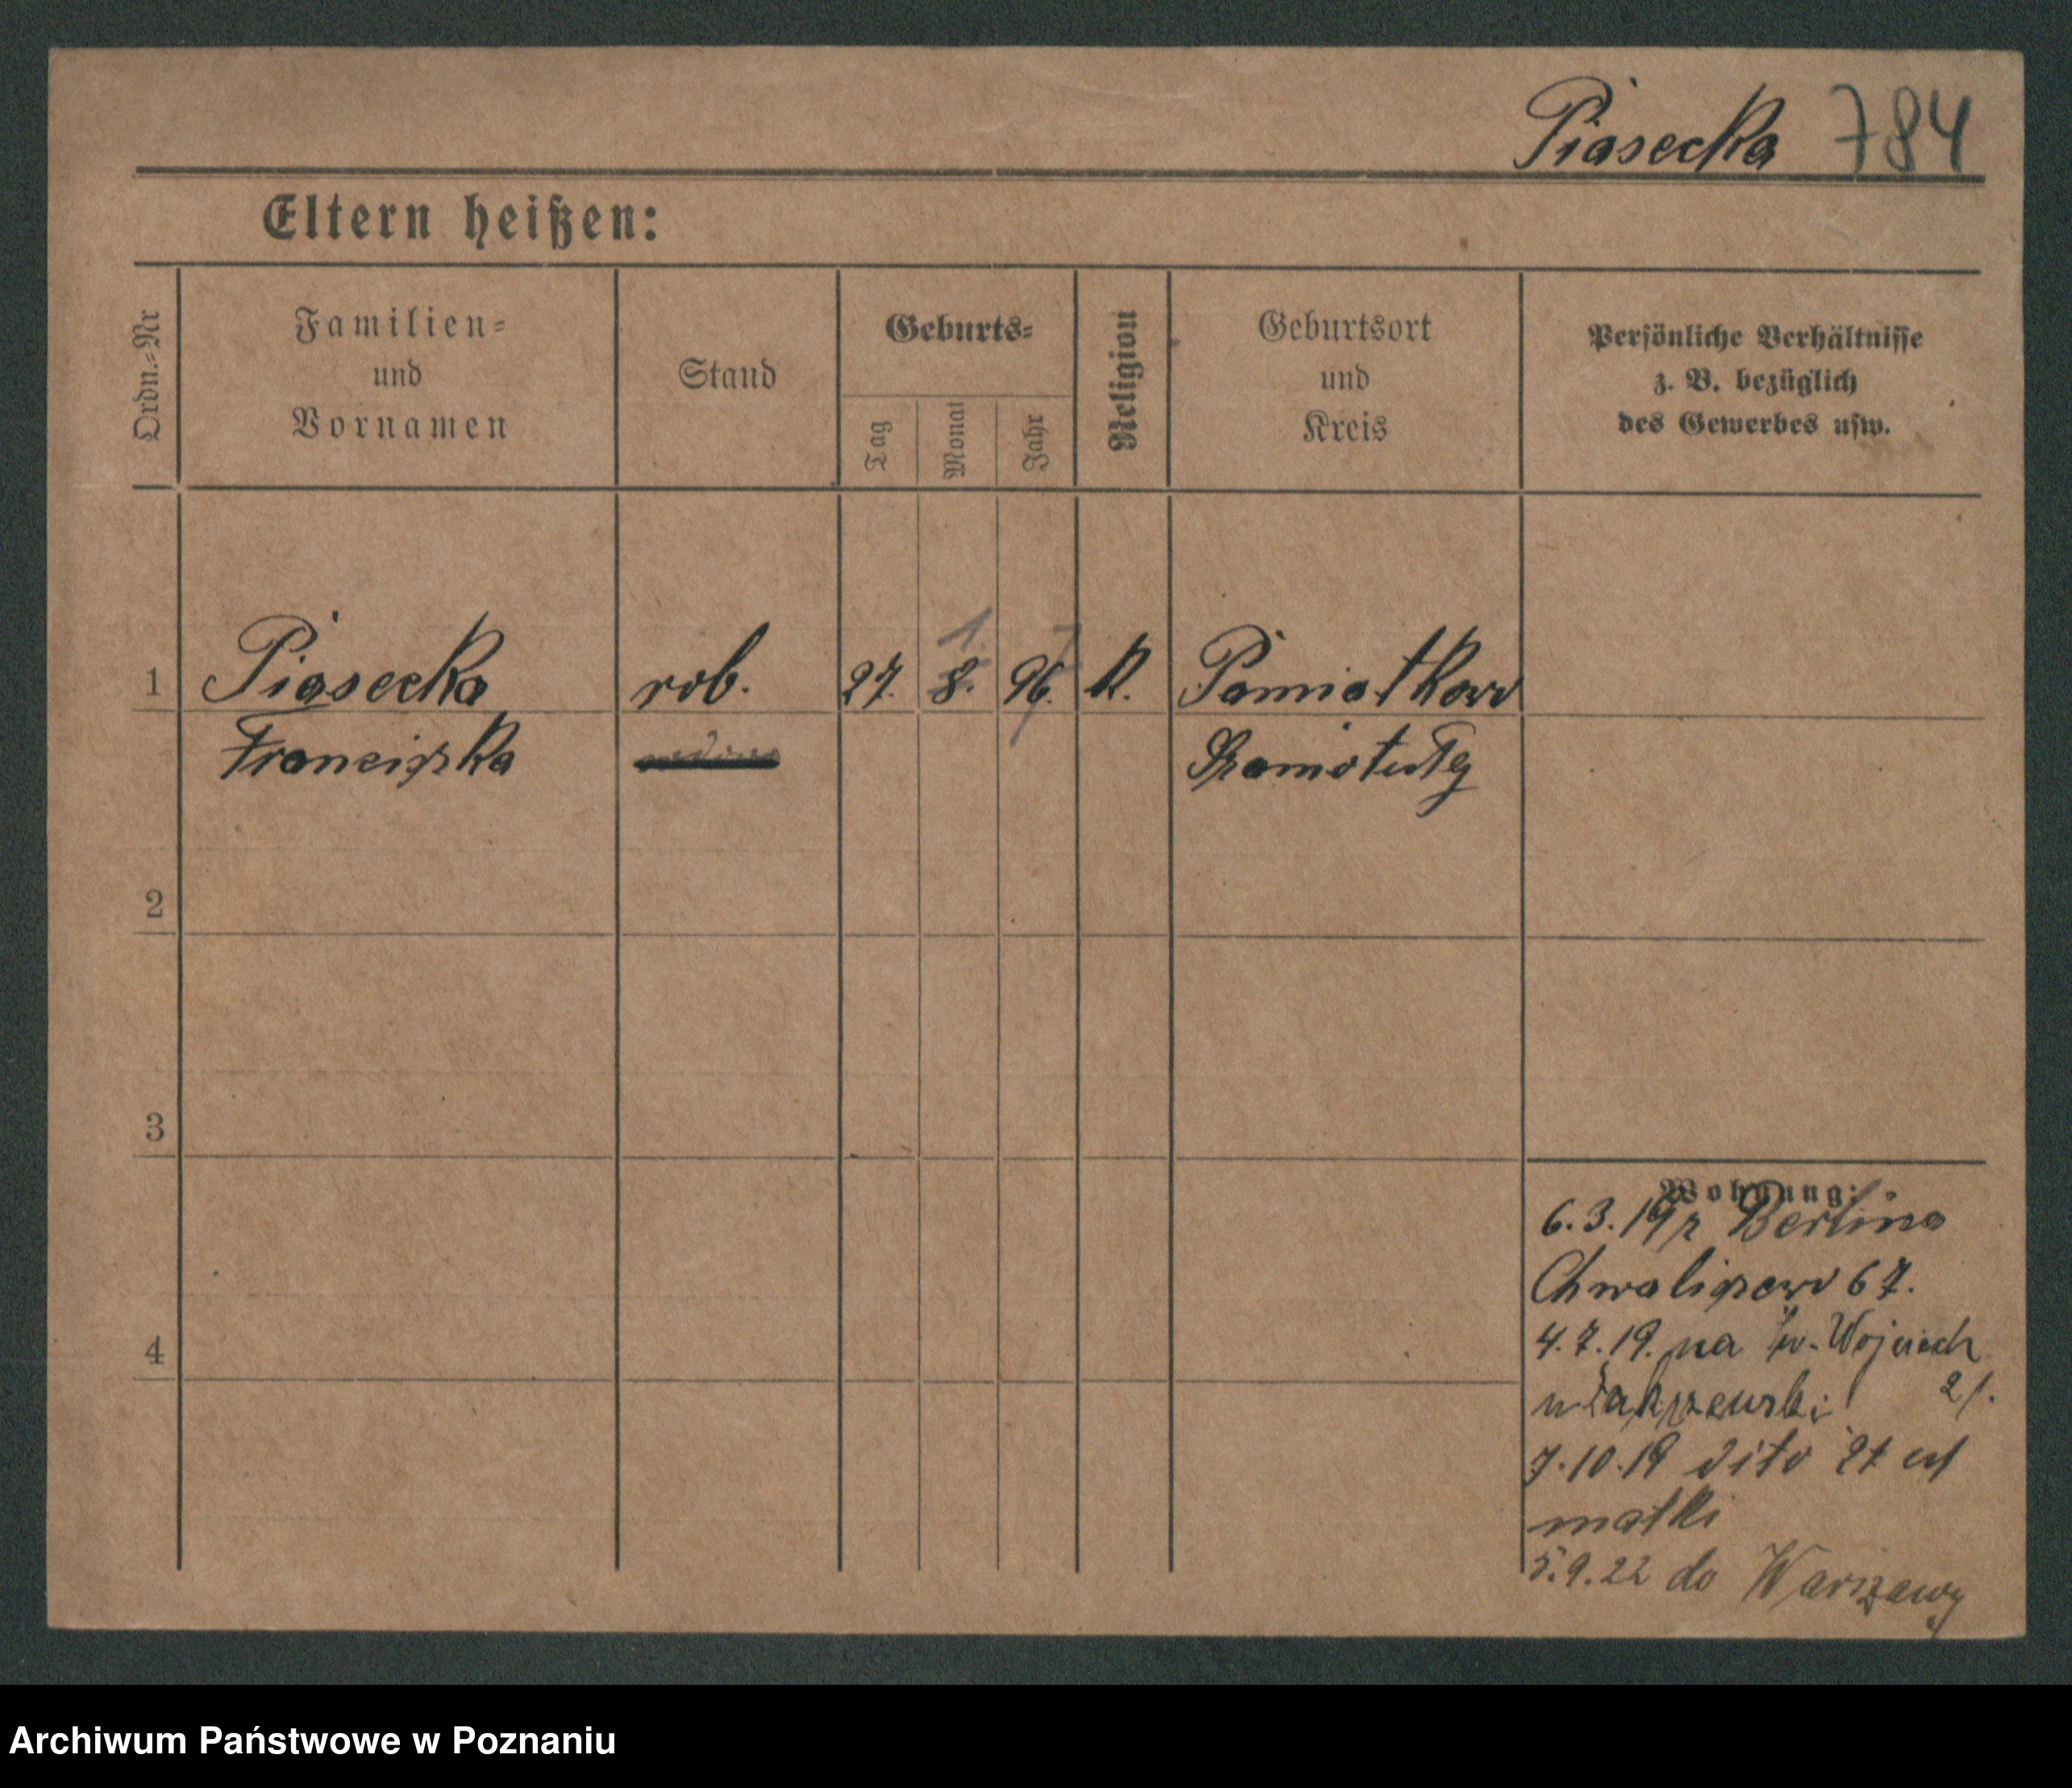 Piasecka 784
Eltern heißen:
Ordn.-Nr
Familien-
und
Vornamen
Stand
Geburts-
Tag
Monat
Jahr
Religion
Geburtsort
und
Kreis
Persönliche Verhältnisse
z. B. bezüglich
des Gewerbes usw.
1.
1 Piasecka rob. 27. 8. 96. K. Pamiątkowo
Franciszka Szamotuły
2
3
4
Wohnung:
6.3.19 z Berlina
Chwaliszewo 67.
4.7.19. na Św. Wojciech
21.
7.10.19 dito 27 od
matki
5.9.22 do Warszawy
Archiwum Państwowe w Poznaniu